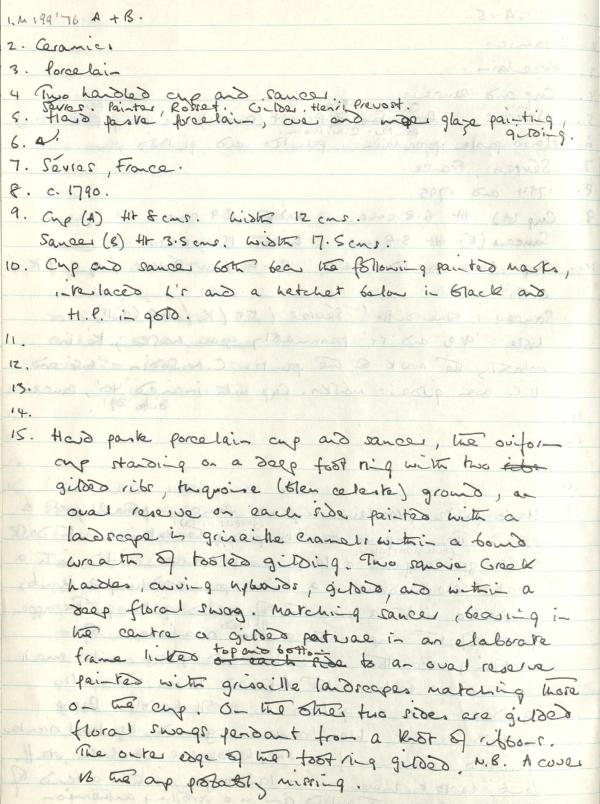 1. M 199'76 A + B.
2. Ceramics
3. Porcelain
4 Two handled cup and saucer.
Sèvres. Painter, Rosset. Gilder, Henri Prevost.
5. Hard paste porcelain, over and under glaze painting, gilding.
6. A
7. Sèvres, France.
8. c. 1790.
9. Cup (A) Ht 8 cms. Width 12 cms.
Saucer (B) Ht 3.5 cms. Width 17.5 cms.
10. Cup and saucer both bear the following painted marks,
interlaced L's and a hatchet below in black and
H.P. in gold.
11.
12.
13.
14.
15. Hard paste porcelain cup and saucer, the oviform
cup standing on a deep foot ring with two ribs
gilded ribs, turquoise (bleu celeste) ground, an
oval reserve on each side painted with a
landscape in grisaille enamels within a bound
wreath of tooled gilding. Two square Greek
handles, curving upwards, gilded, and within a
deep floral swag. Matching saucer, bearing in
the centre a gilded paterae in an elaborate
frame linked on each side top and bottom to an oval reserve
painted with grisaille landscapes matching those
on the cup. On the other two sides are gilded
floral swags pendant from a knot of ribbons.
The outer edge of the foot ring gilded. N.B. A cover
to the cup probably missing.